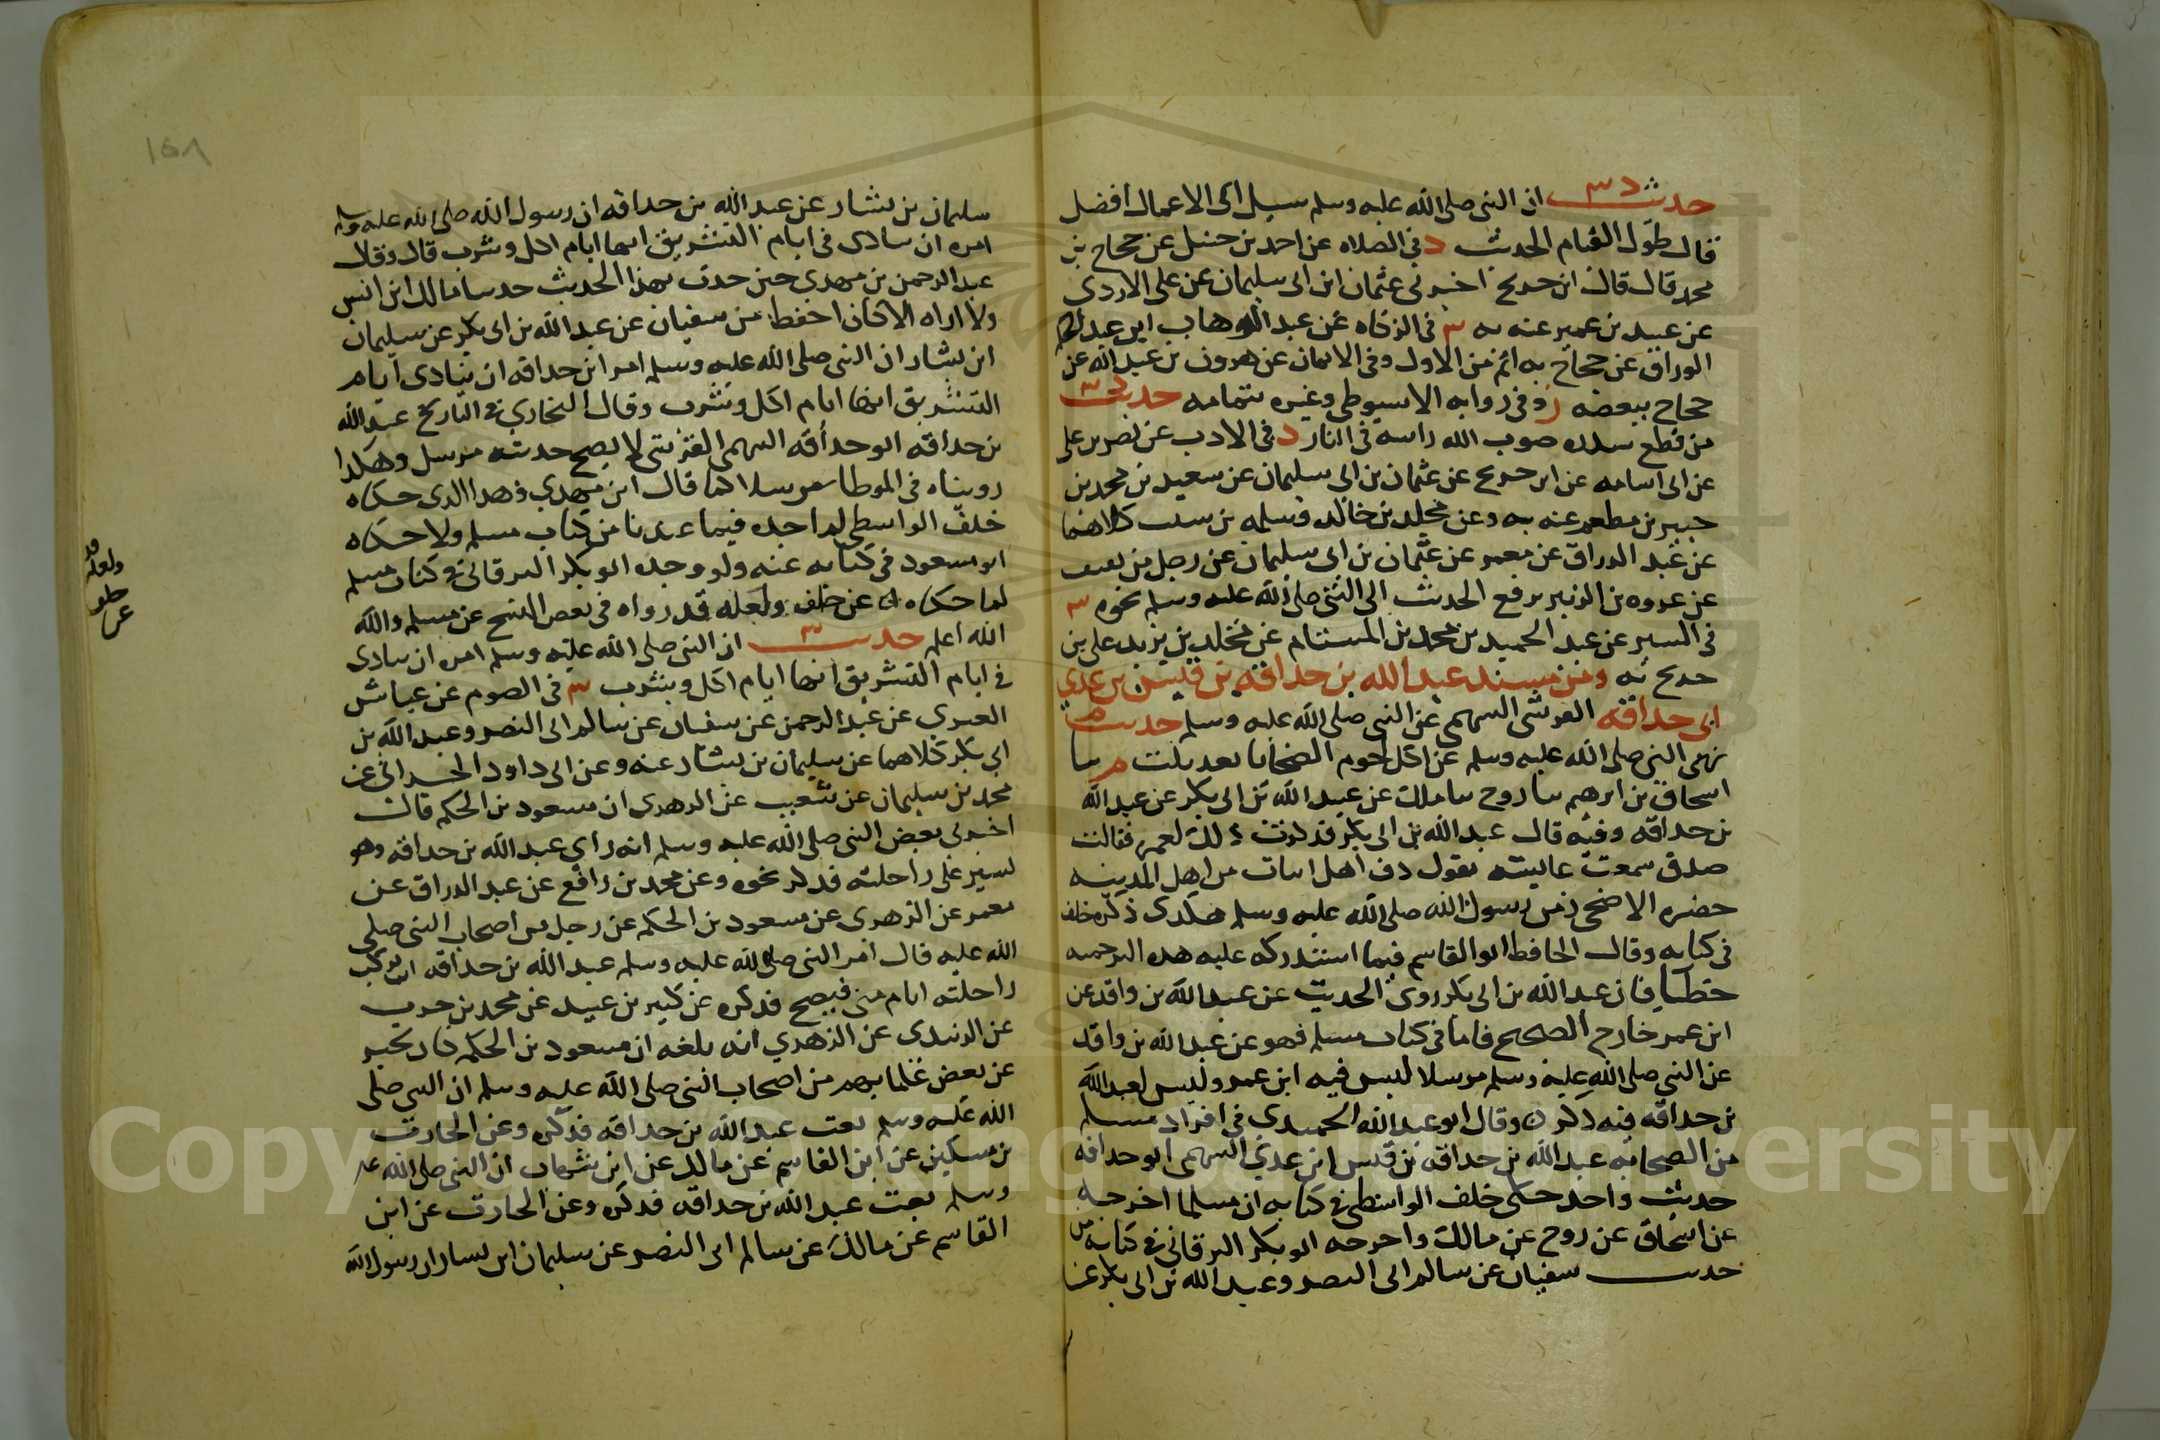 حديث د س ان النبى صلى الله عليه وسلم سيل اى الاعمال افضل
قال طول القيام الحديث د فى الصلاه عن احمد بن حنبل عن حجاج بن
محمد قال قال ابن جريج اخبرنى عثمان ابن ابى سليمان عن على الازدى
عن عبيد بن عمير عنه به س فى الزكاه عن عبد الوهاب ابن عبد الحكم
الوراق عن حجاج به اتم من الاول وفى الايمان عن هرون بن عبد الله عن
حجاج ببعضه ز وفى روايه الاسيوطى وغيره بتمامه حديث د س
من قطع سدره صوب الله راسه فى النار د فى الادب عن نصر بن على
عن ابى اسامه عن ابن جريج عن عثمان بن ابى سليمان عن سعيد بن محمد بن
جبير بن مطعم عنه به وعن مخلد بن خالد وسلمه بن شبيب كلاهما
عن عبد الرزاق عن معمر عن عثمان بن ابى سليمان عن رجل من ثقيف
عن عروه بن الزبير يرفع الحديث الى النبى صلى الله عليه وسلم نحوه س
فى السير عن عبد الحميد بن محمد بن المستام عن مخلد بن يزيد على بن
جريج به ومن مسند عبد الله بن حذافه بن قيس بن عدي
ابى حذافه القرشى السهمى عن النبى صلى الله عليه وسلم حديث م
نهى النبى صلى الله عليه وسلم عن اكل لحوم الضحايا بعد ثلث م سا
اسحاق بن ابرهيم سا روح سا ملك عن عبد الله بن ابى بكر عن عبد الله
بن حذافه وفيه قال عبد الله بن ابى بكر فذكرت ذلك لعمره فقالت
صدق سمعت عايشه تقول دف اهل ابيات من اهل المدينه
حضره الاضحى زمن رسول الله صلى الله عليه وسلم هكذى ذكره خلف
فى كتابه وقال الحافظ ابو القاسم فيما استدركه عليه هذه الترجمه
خطا فان عبد الله بن ابى بكر روى الحديث عن عبد الله بن واقد عن
ابن عمر خارج الصحيح فاما فى كتاب مسلم فهو عن عبد الله بن واقد
عن النبى صلى الله عليه وسلم مرسلا ليس فيه ابن عمر وليس لعبد الله
بن حذافه فيه ذكر ه وقال ابو عبد الله الحميدى فى افراد مسلم
من الصحابه عبد الله بن حذافه بن قيس ابن عدي السهمى ابو حذافه
حديث واحد حكى خلف الواسطى فى كتابه ان مسلما اخرجه
عن اسحاق عن روح عن مالك واخرجه ابو بكر البرقانى فى كتابه من
حديث سفيان عن سالم ابى النضر وعبد الله بن ابى بكر عن
١٥٨
سليمان بن يسار عن عبد الله بن حذافه ان رسول الله صلى الله عليه وسلم
امره ان ينادى فى ايام التشريق انها ايام اكل وشرب قال وقال
عبد الرحمن بن مهدى حين حدث بهذا الحديث حدثنا مالك ابن انس
ولا اراه الا كان احفظ من سفيان عن عبد الله بن ابى بكر عن سليمان
ابن يسار ان النبى صلى الله عليه وسلم امر ابن حذافه ان ينادى ايام
التشريق انها ايام اكل وشرب وقال البخاري فى التاريخ عبد الله
بن حذافه ابو حذافه السهمى القرشى لا يصح حديثه مرسل وهكذا
رويناه فى الموطا مرسلا كما قال ابن مهدى وهذا الذى حكاه
خلف الواسطى لم اجده فيما عندنا من كتاب مسلم ولا حكاه
ابو مسعود فى كتابه عنه ولو وجده ابو بكر البرقانى فى كتاب مسلم
لما حكاه عن خلف ولعله قد رواه فى بعض النسخ عن مسلم والله
الله اعلم حديث س ان النبى صلى الله عليه وسلم امره ان ينادى
فى ايام التشريق انها ايام اكل وشرب س فى الصوم عن عباس
العنبرى عن عبد الرحمن عن سفيان عن سالم ابى النضر وعبد الله بن
ابى بكر كلاهما عن سليمان بن يسار عنه وعن ابى داود الحرانى عن
محمد بن سليمان عن شعيب عن الزهرى ان مسعود بن الحكم قال
اخبرنى بعض النبى صلى الله عليه وسلم انه راى عبد الله بن حذافه وهو
يسير على راحلته فذكر نحوه وعن محمد بن رافع عن عبد الرزاق عن
معمر عن الزهرى عن مسعود بن الحكم عن رجل من اصحاب النبى صلى
الله عليه قال امر النبى صلى الله عليه وسلم عبد الله بن حذافه ان يركب
راحلته ايام منى فيصيح فذكره عن كثير بن عبيد عن محمد بن حرب
عن الزبيدى عن الزهري انه بلغه ان مسعود بن الحكم كان يخبر
عن بعض علمايهم من اصحاب النبى صلى الله عليه وسلم ان النبى صلى
الله عليه وسلم بعث عبد الله بن حذافه فذكره وعن الحارث
بن مسكين عن ابن القاسم عن مالك عن ابن شهاب ان النبى صلى الله عليه
وسلم بعث عبد الله بن حذافه فذكره وعن الحارث عن ابن
القاسم عن مالك عن سالم ابى النضر عن سليمان ابن يسار ان رسول الله
ولعله قد
Copy King University